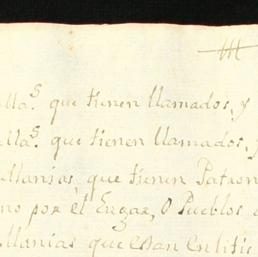 llas. que tienen llamados, y
llas. que tienen llamados, y
llanias, que tienen Patron
no por el Lugar, o Pueblos
llanias que estan en litic